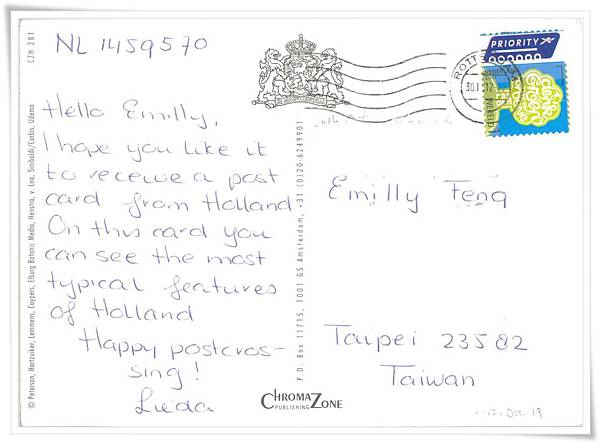 NL 1459570
Hello Emilly,
I hope you like it
to receive a post
card from Holland
On this card you
can see the most
typical features
of Holland
Happy postcros-
sing!
Lieda
PRIORITY
Emilly Feng
Taipei 23582
Taiwan
CZH 281
© Peterson, Hartzuiker, Lemmens, Cuypers, Elburg Botanic Media, Henstra, v. Loo, Sinibaldi/Corbis, Udema
P.O. Box 11715, 1001 GS Amsterdam, +31 (0)20-6249901
CHROMAZONE
PUBLISHING